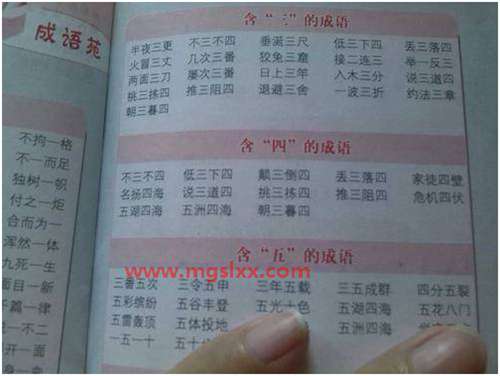 成语苑
不拘一格
不一而足
独树一帜
付之一炬
合而为一
浑然一体
九死一生
面目一新
篇一律
一不二
开一面
含“三”的成语
半夜三更 不三不四 垂涎三尺 低三下四 丢三落四
火冒三丈 几次三番 狡兔三窟 接二连三 举一反三
两面三刀 屡次三番 日上三竿 入木三分 说三道四
挑三拣四 推三阻四 退避三舍 一波三折 约法三章
朝三暮四
含“四”的成语
不三不四 低三下四 颠三倒四 丢三落四 家徒四壁
名扬四海 说三道四 挑三拣四 推三阻四 危机四伏
五湖四海 五洲四海 朝三暮四
含“五”的成语
www.mgslxx.com
三番五次 三令五申 三年五载 三五成群 四分五裂
五彩缤纷 五谷丰登 五光十色 五湖四海 五花八门
五雷轰顶 五体投地 五洲四海
一五一十